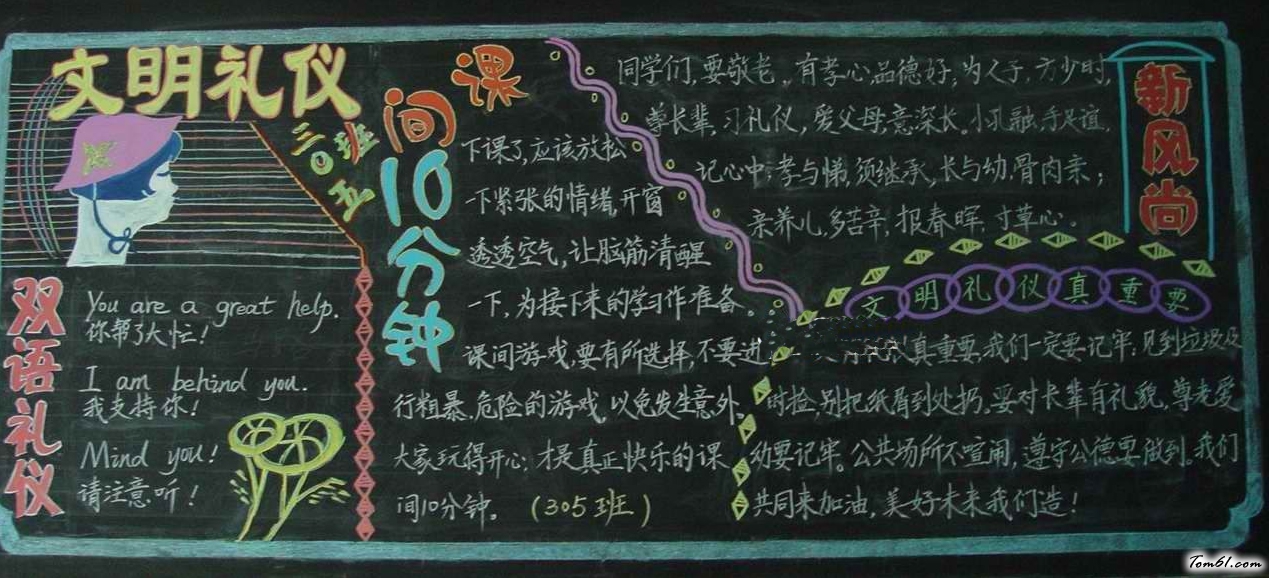 文明礼仪
三〇五班
双语礼仪
You are a great help.
你帮了大忙！
I am behind you.
我支持你！
Mind you!
请注意听！
课间10分钟
下课了，应该放松
一下紧张的情绪，开窗
透透空气，让脑筋清醒
一下，为接下来的学习作准备。
课间游戏，要有所选择，不要进
行粗暴、危险的游戏，以免发生意外。
大家玩得开心，才是真正快乐的课
间10分钟。（305班）
新风尚
同学们，要敬老，有孝心，品德好；为人子，方少时，
尊长辈，习礼仪，爱父母，意深长。小孔融，手足谊，
记心中；孝与悌，须继承，长与幼，骨肉亲；
亲养儿，多苦辛，报春晖，寸草心。
文明礼仪真重要
真重要，我们一定要记牢；见到垃圾及
时捡，别把纸屑到处扔。要对长辈有礼貌，尊老爱
幼要记牢。公共场所不喧闹，遵守公德要做到。我们
共同来加油，美好未来我们造！
Tom61.com